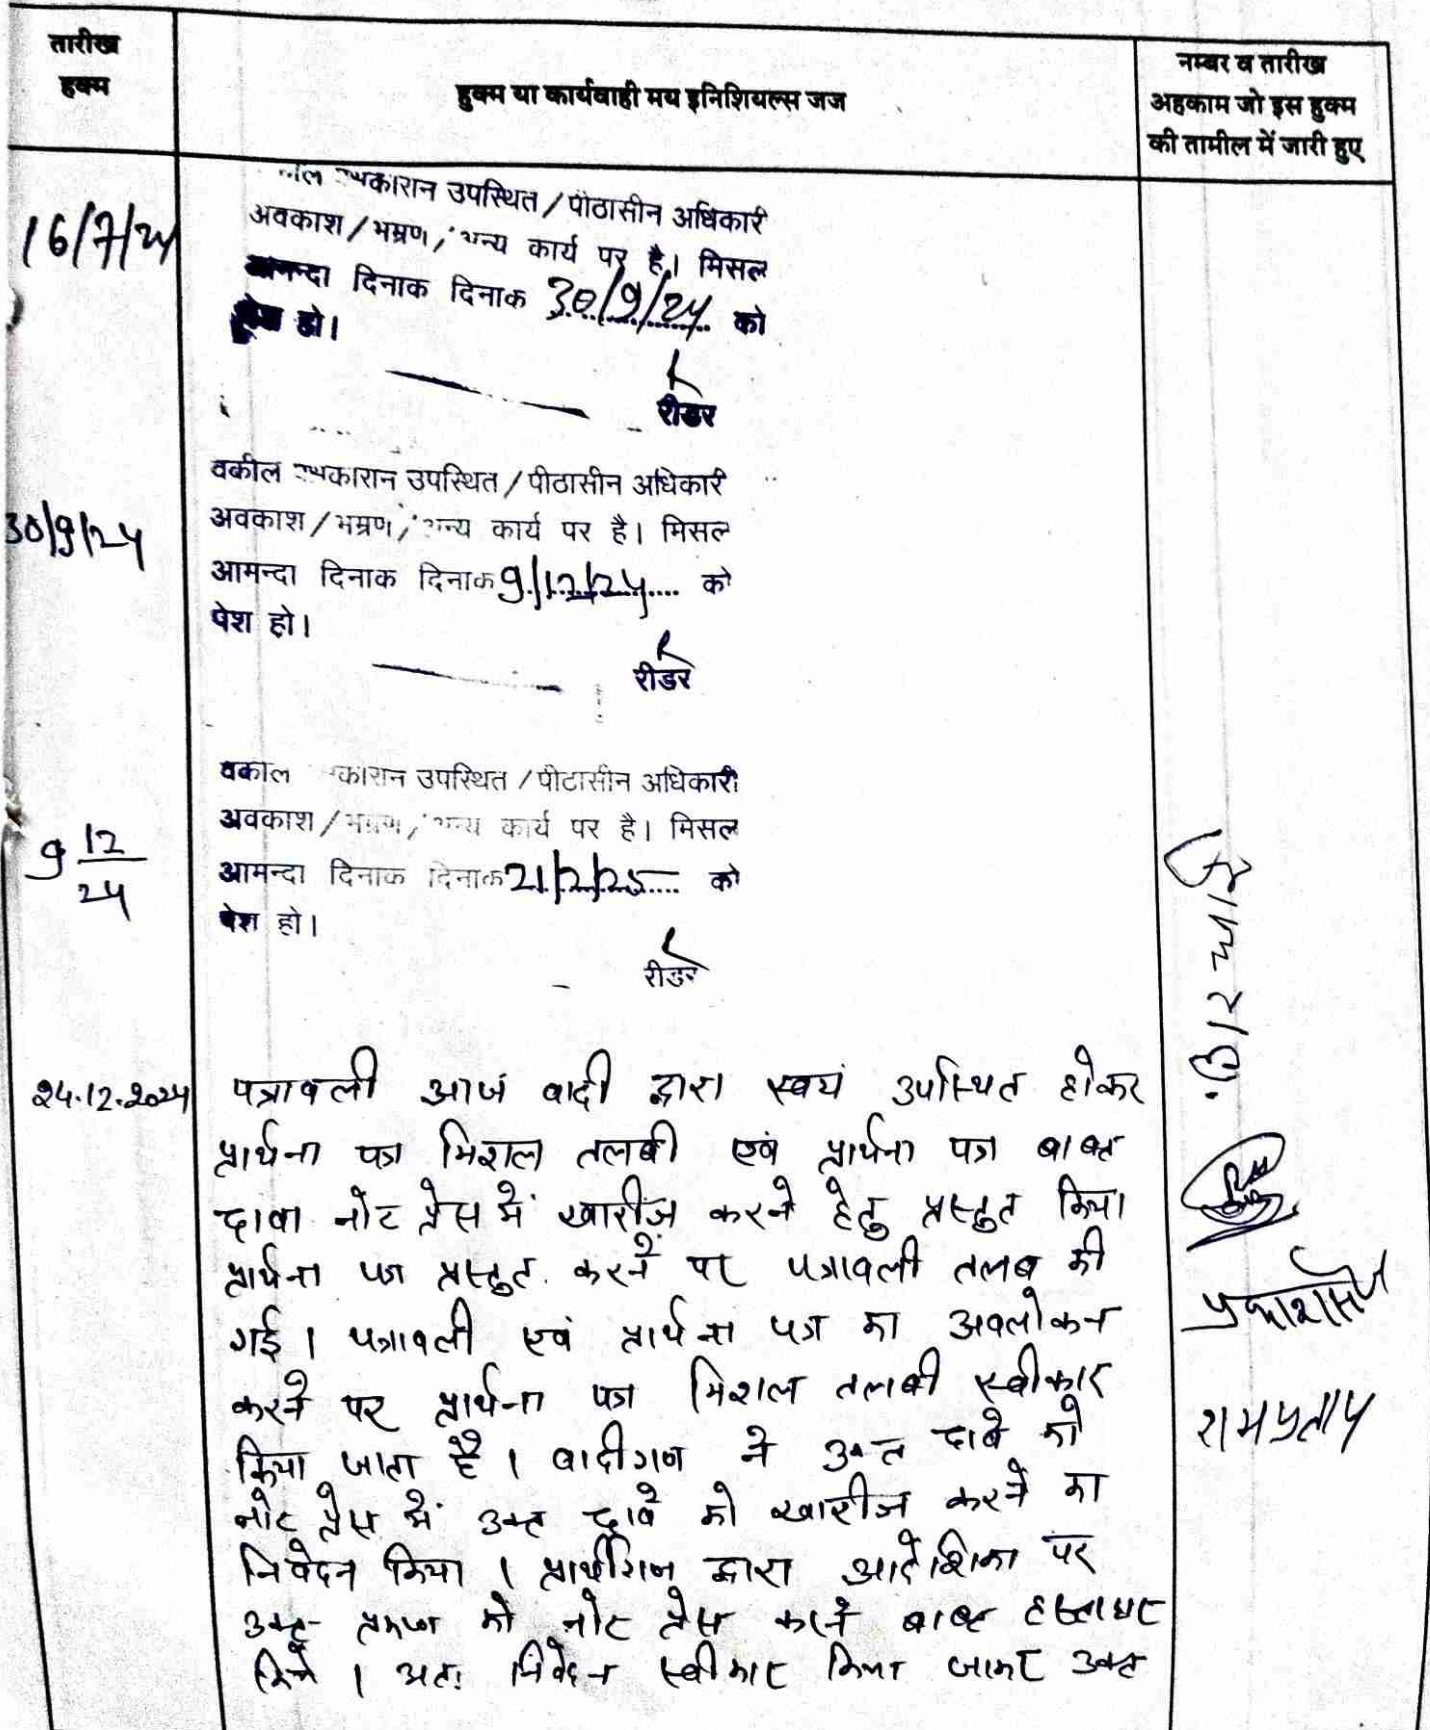 तारीख
हुक्म
हुक्म या कार्यवाही मय इनिशियल्स जज
नम्बर व तारीख
अहकाम जो इस हुक्म
की तामील में जारी हुए
16/7/24
उपस्थित / पीठासीन अधिकारी
अवकाश / भम्रण / अन्य कार्य पर है। मिसल
आमन्दा दिनाक दिनाक 30/9/24 को
पेश हो।
रीडर
30/9/24
वकील पक्षकारान उपस्थित / पीठासीन अधिकारी
अवकाश / भम्रण / अन्य कार्य पर है। मिसल
आमन्दा दिनाक दिनाक 9/12/24 को
पेश हो।
रीडर
9 12/24
वकील पक्षकारान उपस्थित / पीठासीन अधिकारी
अवकाश / भम्रण / अन्य कार्य पर है। मिसल
आमन्दा दिनाक दिनाक 21/2/25 को
पेश हो।
रीडर
24.12.2024
पत्रावली आज वादी द्वारा स्वयं उपस्थित होकर
प्रार्थना पत्र मिशल तलबी एवं प्रार्थना पत्र बाबत
दावा नोट प्रेस में खारीज करने हेतु प्रस्तुत किया
प्रार्थना पत्र प्रस्तुत करने पर पत्रावली तलब की
गई। पत्रावली एवं प्रार्थना पत्र का अवलोकन
करने पर प्रार्थना पत्र मिशल तलबी स्वीकार
किया जाता है। वादीगण ने उक्त दावे को
नोट प्रेस में उक्त दावे को खारीज करने का
निवेदन किया। प्रार्थीगण द्वारा आदेशिका पर
उक्त प्रकरण को नोट प्रेस करने बाबत हस्ताक्षर
किये। अतः निवेदन स्वीकार किया जाकर उक्त
रामप्रताप